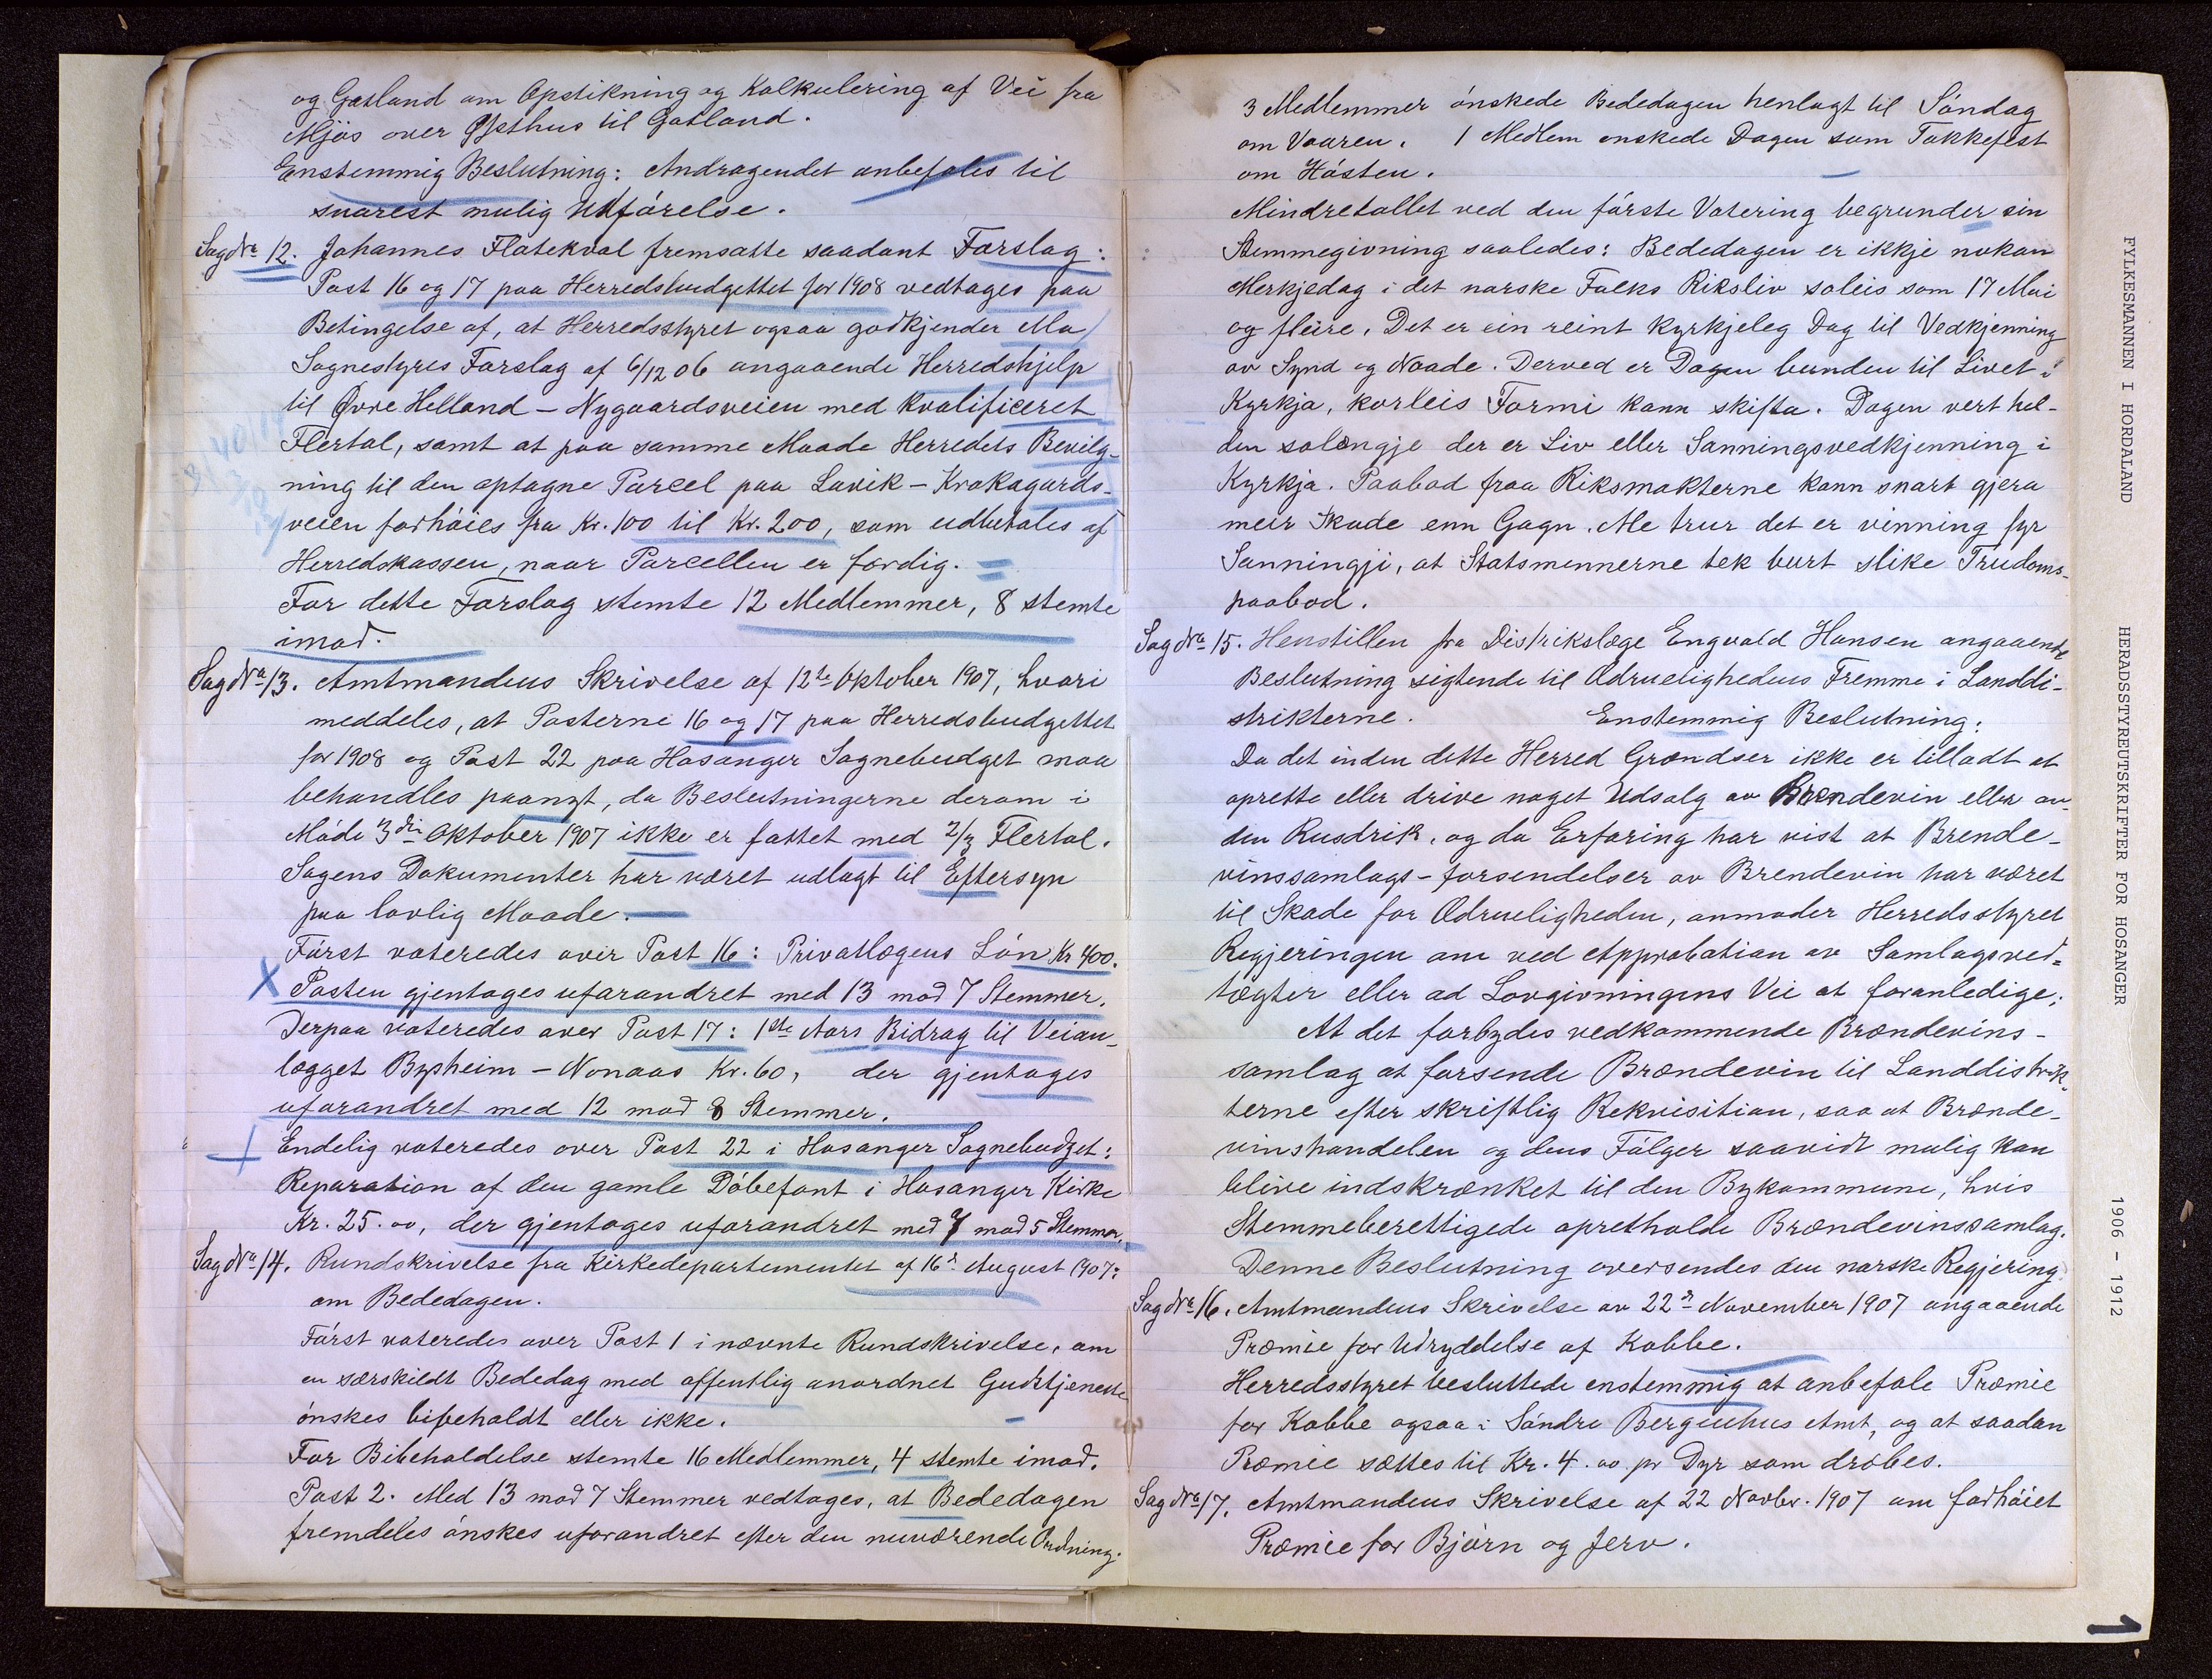 og Gatland om Opstikning og Kalkulering af Vei fra
Mjøs over Øfsthus til Gatland.
Enstemmig Beslutning: Andragendet anbefales til
snarest mulig Udførelse.
Sag No 12. Johannes Flatekval fremsatte saadant Forslag:
Post 16 og 17 paa Herredsbudgettet for 1908 vedtages paa
Betingelse af, at Herredsstyret ogsaa godkjender Mo
Sognestyres Forslag af 6/12 06 angaaende Herredshjelp
til Øvre Helland - Nygaardsveien med kvalificeret
Flertal, samt at paa samme Maade Herredets Bevilg-
ning til den optagne Parcel paa Lavik - Krakagards-
veien forhøies fra Kr. 100 til Kr. 200, som udbetales af
Herredskassen, naar Parcellen er færdig.
For dette Forslag stemte 12 Medlemmer, 8 stemte
imod.
Sag No 13. Amtmandens Skrivelse af 12te Oktober 1907, hvori
meddeles, at Posterne 16 og 17 paa Herredsbudgettet
for 1908 og Post 22 paa Hosanger Sognebudget maa
behandles paanyt, da Beslutningerne derom i
Møde 3die Oktober 1907 ikke er fattet med 2/3 Flertal.
Sagens Dokumenter har været udlagt til Eftersyn
paa lovlig Maade.
Først voteredes over Post 16: Privatlægens Løn Kr 400.
X Posten gjentages uforandret med 13 mod 7 Stemmer.
Derpaa voteredes over Post 17: 1ste Aars Bidrag til Veian-
lægget Bysheim - Nonaas Kr. 60, der gjentages
uforandret med 12 mod 8 Stemmer.
Endelig voteredes over Post 22 i Hosanger Sognebudget:
Reparation af den gamle Døbefont i Hosanger Kirke
Kr. 25.00, der gjentages uforandret med 7 mod 5 Stemmer.
Sag No 14. Rundskrivelse fra Kirkedepartementet af 16de August 1907:
om Bededagen.
Først voteredes over Post 1 i nævnte Rundskrivelse, om
en særskildt Bededag med offentlig anordnet Gudstjeneste
ønskes bibeholdt eller ikke.
For Bibeholdelse stemte 16 Medlemmer, 4 stemte imod.
Post 2. Med 13 mod 7 Stemmer vedtages, at Bededagen
fremdeles ønskes uforandret efter den nuværende Ordning.
3 Medlemmer ønskede Bededagen henlagt til Søndag
om Vaaren. 1 Medlem ønskede Dagen som Takkefest
om Høsten.
Mindretallet ved den første Votering begrunder sin
Stemmegivning saaledes: Bededagen er ikkje nokon
Merkjedag i det norske Folks Riksliv soleis som 17 Mai
og fleire. Det er ein reint kyrkjeleg Dag til Vedkjenning
av Synd og Naade. Derved er Dagen bunden til Livet i
Kyrkja, korleis Formi kann skifta. Dagen vert hal-
den solengje der er Liv eller Sanningsvedkjenning i
Kyrkja. Paabod fraa Riksmakterne kann snart gjera
meir Skade enn Gagn. Me trur det er vinning fyr
Sanningji, at Statsmennerne tek burt slike Trudoms-
paabod.
Sag No 15. Henstillen fra Distriktslæge Engvald Hansen angaaende
Beslutning sigtende til Ædruelighedens Fremme i Landdi-
strikterne. Enstemmig Beslutning:
Da det inden dette Herred Grændser ikke er tilladt at
oprette eller drive noget Udsalg av Brændevin eller an-
den Rusdrik, og da Erfaring har vist at Brende-
vinssamlags-forsendelser av Brendevin har været
til Skade for Ædrueligheden, anmoder Herredsstyret
Regjeringen om ved Approbation av Samlagsved-
tægter eller ad Lovgivningens Vei at foranledige;
At det forbydes vedkommende Brændevins-
samlag at forsende Brændevin til Landdistrik-
terne efter skriftlig Rekvisition, saa at Brænde-
vinshandelen og dens Følger saavidt mulig kan
blive indskrænket til den Bykommune, hvis
Stemmeberettigede opretholde Brændevinssamlag.
Denne Beslutning oversendes den norske Regjering
Sag No 16. Amtmandens Skrivelse av 22de November 1907 angaaende
Præmie for Udryddelse af Kobbe.
Herredsstyret besluttede enstemmig at anbefale Præmie
for Kobbe ogsaa i Søndre Bergenhus Amt, og at saadan
Præmie sættes til Kr. 4.00 pr Dyr som dræbes.
Sag No 17. Amtmandens Skrivelse af 22 Novbr. 1907 om forhøiet
Præmie for Bjørn og Jerv.
FYLKESMANNEN I HORDALAND HERADSSTYREUTSKRIFTER FOR HOSANGER 1906 - 1912
1